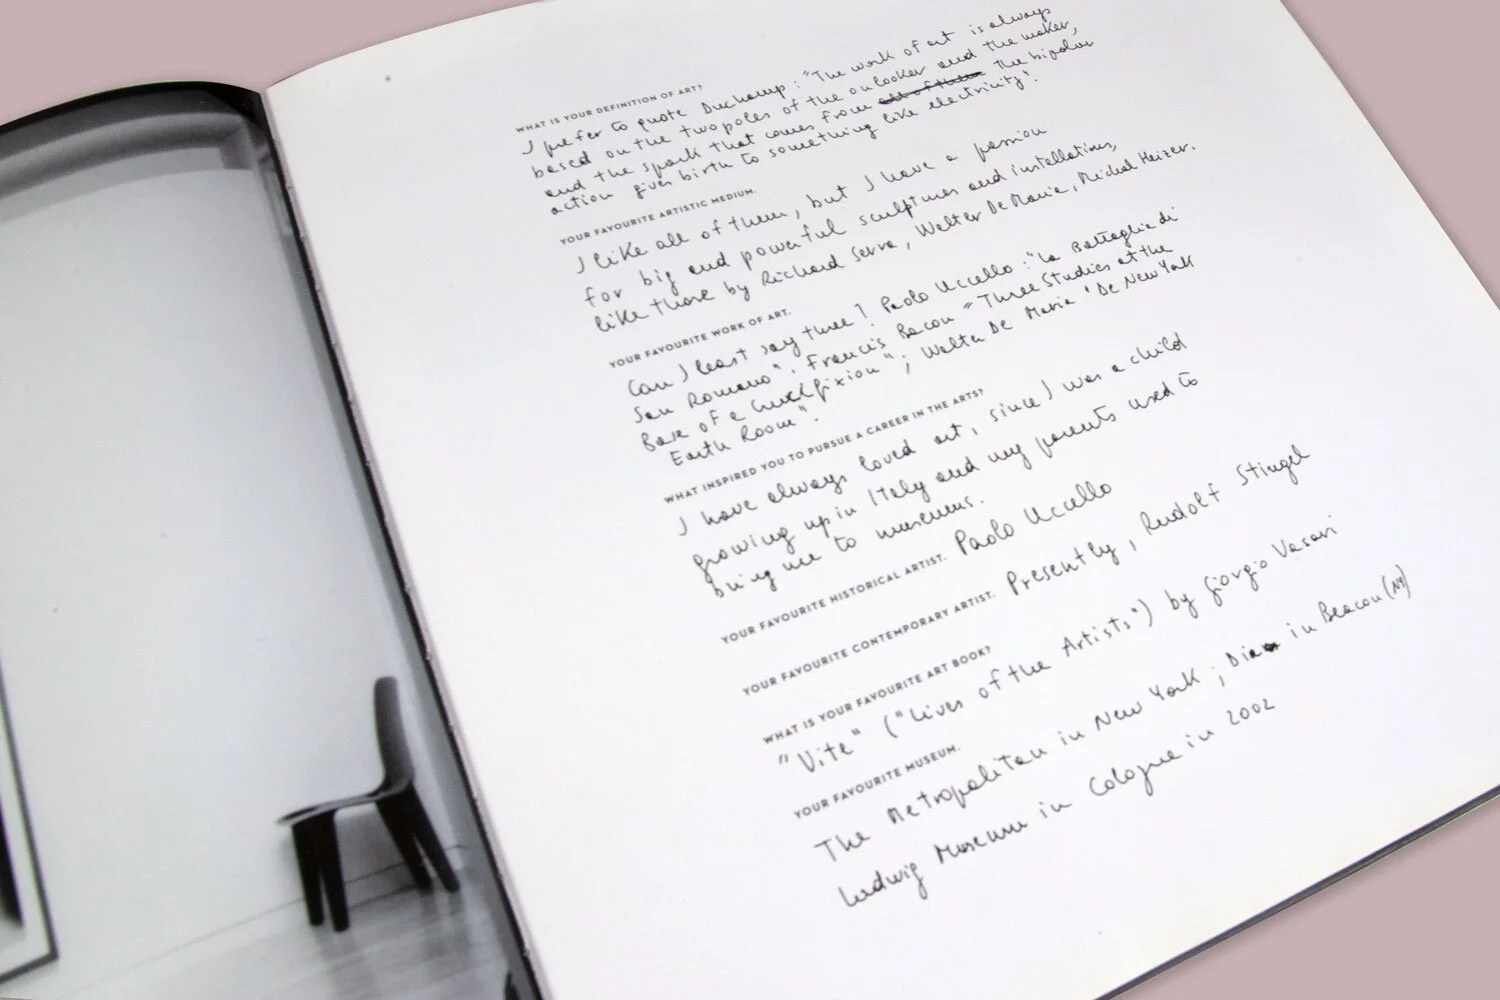 WHAT IS YOUR DEFINITION OF ART?
I prefer to quote Duchamp: "The work of art is always
based on the two poles of the onlooker and the maker,
and the spark that comes from the bipolar
action gives birth to something like electricity".
YOUR FAVOURITE ARTISTIC MEDIUM.
I like all of them, but I have a passion
for big and powerful sculptures and installations,
like those by Richard Serra, Walter De Maria, Michael Heizer.
YOUR FAVOURITE WORK OF ART.
Can I least say three? Paolo Uccello: "La Battaglia di
San Romano". Francis Bacon "Three Studies at the
Base of a Crucifixion"; Walter De Maria "De New York
Earth Room".
WHAT INSPIRED YOU TO PURSUE A CAREER IN THE ARTS?
I have always loved art, since I was a child
growing up in Italy and my parents used to
bring me to museums.
YOUR FAVOURITE HISTORICAL ARTIST. Paolo Uccello
YOUR FAVOURITE CONTEMPORARY ARTIST. Presently, Rudolf Stingel
WHAT IS YOUR FAVOURITE ART BOOK?
"Vite" ("Lives of the Artists") by Giorgio Vasari
YOUR FAVOURITE MUSEUM.
The Metropolitan in New York; Dia in Beacon (NY)
Ludwig Museum in Cologne in 2002